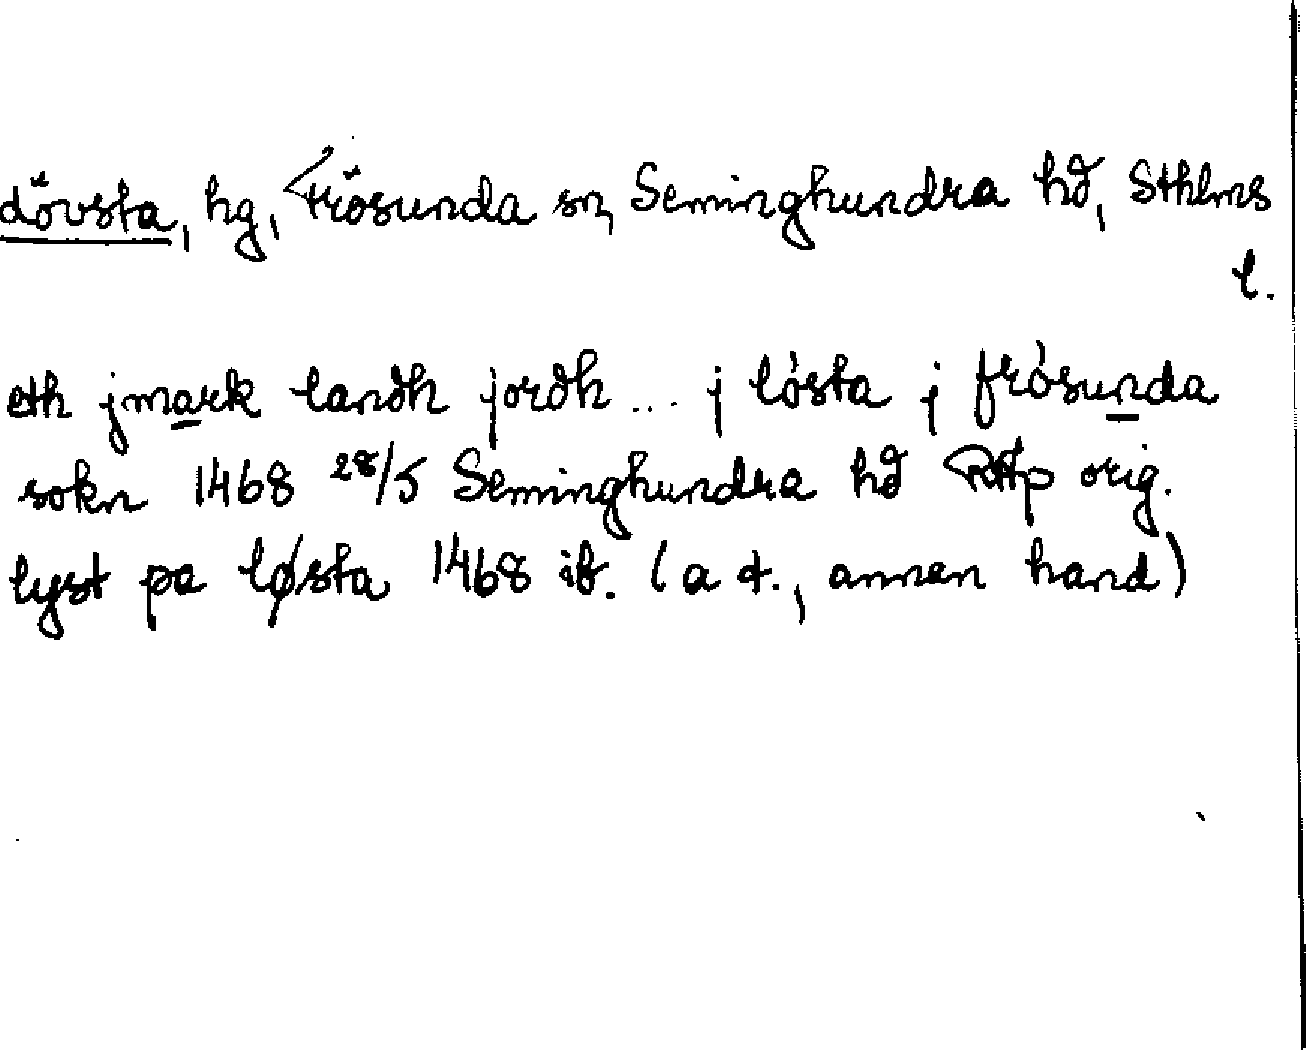 dövsta, hg, Frösunda sn, Seminghundra hd, Sthlms
l.
eth jmark landh jordh ... j lósta j frósunda
sokn 1468 28/5 Seminghundra hd RAp orig.
lyst pa løsta 1468 ib. (a t., annan hand)